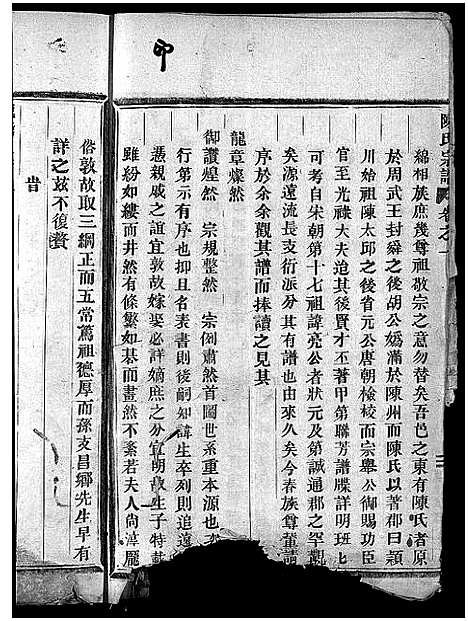 印
陳氏宗譜 卷之一
綿相族庶幾尊祖敬宗之意勿替矣吾邑之東有陳氏者原
於周武王封舜之後胡公媯滿於陳州而陳氏以著郡曰潁
川始祖陳太邱之後省元公唐朝檢校而宗舉公御賜功臣
官至光祿大夫迨其後賢才丕著甲第聯芳譜牒詳明班七
可考自宋朝第十七祖諱亮公者狀元及第誠通郡之罕觀
矣源遠流長支衍派分其有譜也由來久矣今春族尊董請
序於余余觀其譜而捧讀之見其
龍章燦然
御讚煌然 宗規整然 宗倒肅然首圖世系重本源也
行第次有序也抑且名表書則後嗣知諱生卒列則追遠
憑親戚之誼宜敦故嫁娶必詳嫡庶之分宜明故生子特載
雖紛如縷而井然有條繁如碁而畫然不紊若夫人尚淳厖
俗敦故取三綱正而五常篤祖德厚而孫支昌鄉先生早有
詳之玆不復贅
旹